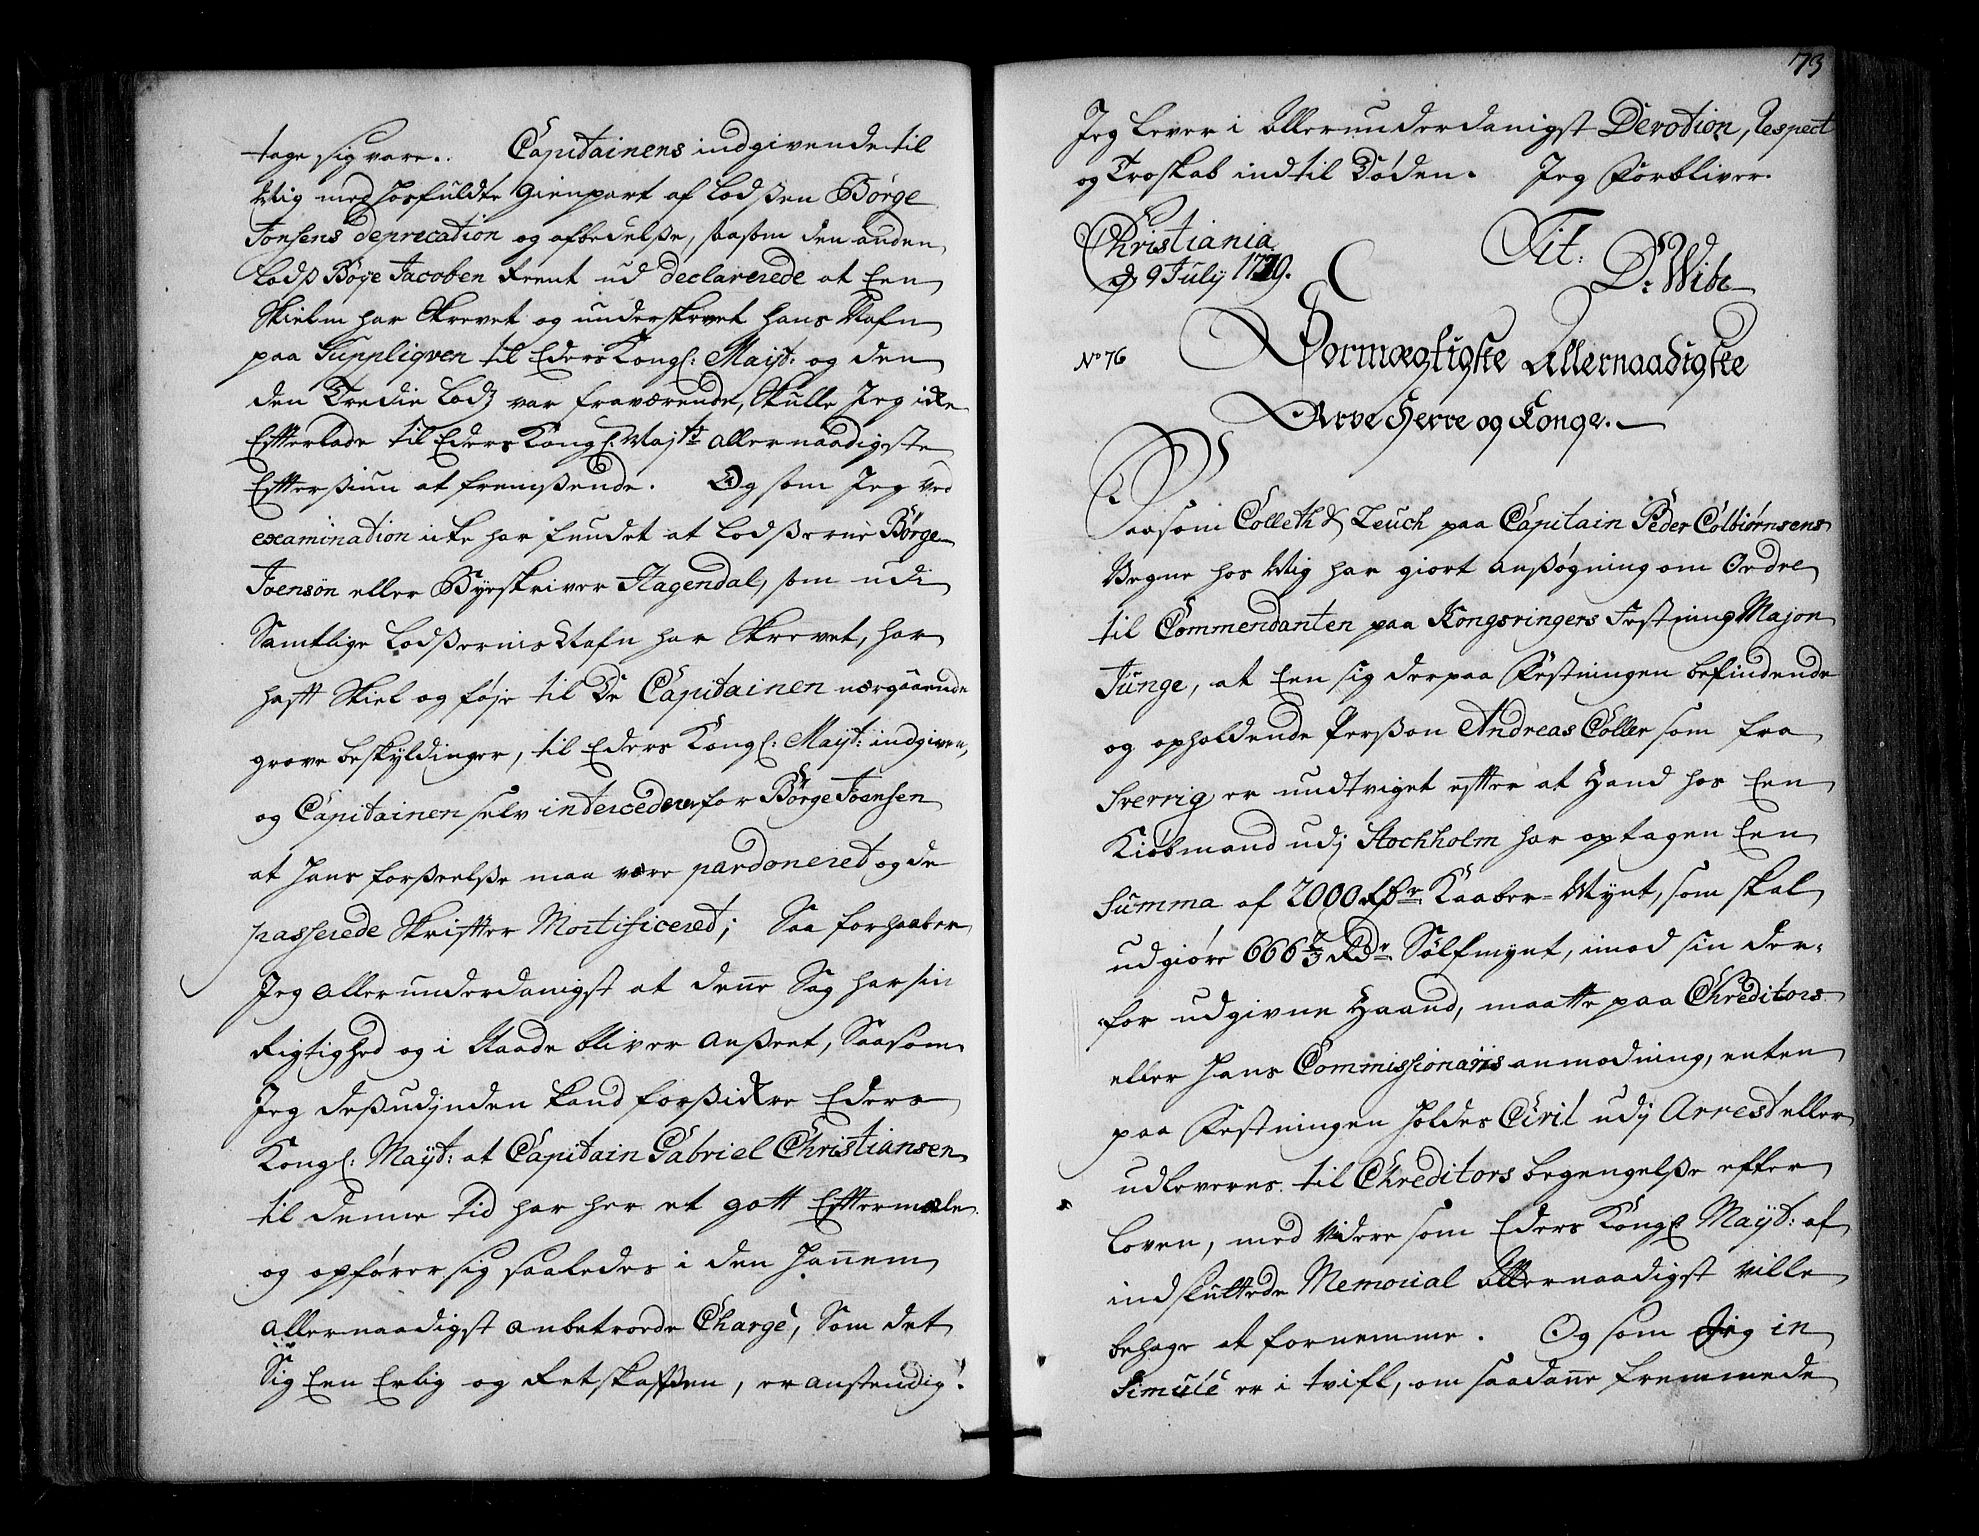 tage sig vare. Capitainens indgivende til
Mig med hosfuldte Gienpart af Lodsen Børge
Jonsens deprecation og afbedelse, saasom den anden
Lods Boye Jacobsen reent ud declarerede at Een
Skielm har Skrevet og underskrevet hans Nafn
paa Suppliqven til Eders Kongl: Mayst: og den
den Tredie Lods var fraværende, Skulle Jeg icke
Efterlade til Eders Kongl Mayts allernaadigste
Eftersiun at fremsende. Og som Jeg ved
examination icke har fundet at Lodserne Børge
Joensøn eller Byeskriver Hagendal, som udi
Samtlige Lodsernis Nafn har Skrevet, har
haft Skiel og føje til De Capitainen nærgaaende
grove beskyldinger, til Eders Kongl: Mayt: indgiven,
og Capitainen selv intercederer for Børge Joensen
at hans forseelse maa være pardoneret og de
passerede Skrifter Mortificeret; Saa forhaaber
Jeg allerunderdanigst at denne Sag har sin
Rigtighed og i Naade bliver anseet, Saasom
Jeg desudinden kand forsickre Eders
Kongl: Mayt: at Capitain Gabriel Christiansen
til denne tid har her et gott Eftermæle
og opfører sig saaledes i den hannem
allernaadigst anbetroede Charge, Som det
Sig Een Erlig og Retskaffen, er anstendig.
73
Jeg lever i Allerunderdanigst Devotion, Respect
og Troskab indtil Døden. Jeg Forbliver.
Christiania
d 9 July 1729.
Tit:
D: Wibe
No 76
Stormægtigste Allernaadigste
Arve Herre og Konge.
Saasom Colleth & Leuch paa Capitain Peder Colbiørnsens
Vegne hos Mig har giort ansøgning om Ordre
til Commendanten paa Kongsvingers Festning Major
Junge, at Een sig derpaa Festningen befindende
og opholdende Person Andreas Coller som fra
Sverrig er undviget efter at Hand hos Een
Kiøbmand udj Stochholm har optagen Een
Summa af 2000 Rdr Kaaber-Mynt, som skal
udgiøre 666 2/3 Rdr Sølfmynt, imod sin der-
for udgivne Haand, maatte paa Chreditors
eller hans Commissionairs anmodning, enten
paa Festningen holdes Civil udj Arrest eller
udleveres til Chreditors begengelse efter
Loven, med Videre som Eders Kongl Mayt: af
indsluttede Memorial Allernaadigst ville
behage at fornemme. Og som Jeg in
Simule er i tvifl, om saadanne fremmede